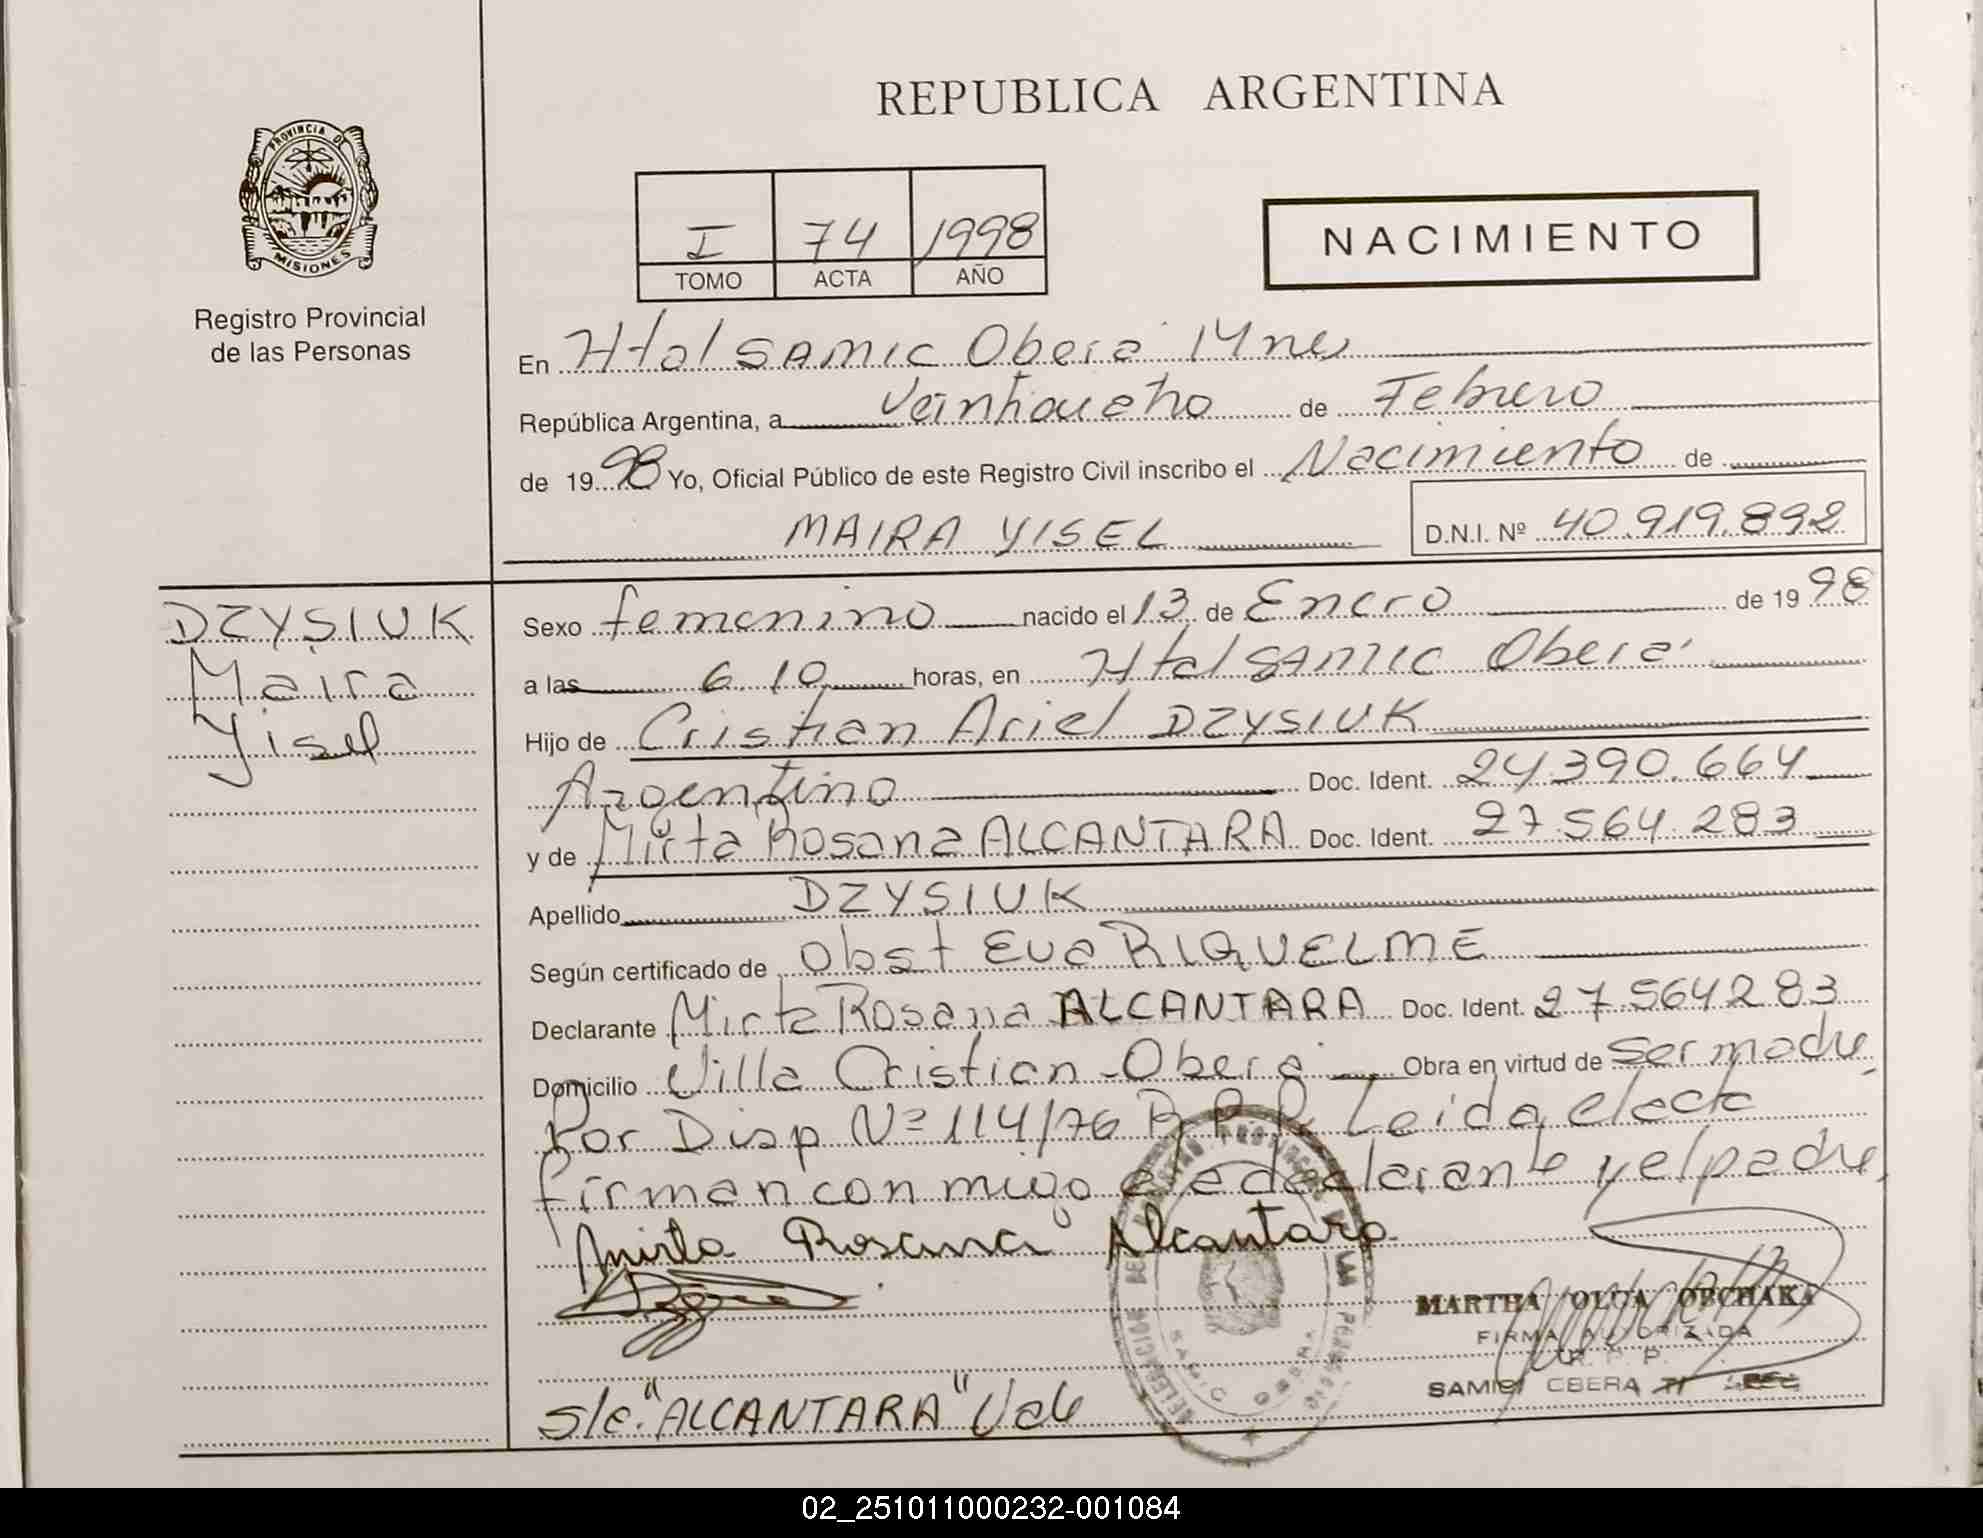 REPUBLICA ARGENTINA
PROVINCIA DE
MISIONES
Registro Provincial
de las Personas
I 74 1998
TOMO ACTA AÑO
NACIMIENTO
En Htal SAMIC Oberá Mnes
República Argentina, a Veintiocho de Febrero
de 1998 Yo, Oficial Público de este Registro Civil inscribo el Nacimiento de
MAIRA YISEL D.N.I. Nº 40.919.892
DZYSIUK
Maira
Yisel
Sexo femenino nacido el 13 de Enero de 1998
a las 6 10 horas, en Htal SAMIC Oberá
Hijo de Cristian Ariel DZYSIUK
Argentino Doc. Ident. 24.390.664
y de Mirta Rosana ALCANTARA Doc. Ident. 27.564.283
Apellido DZYSIUK
Según certificado de Obst Eva RIQUELME
Declarante Mirta Rosana ALCANTARA Doc. Ident. 27564283
Domicilio Villa Cristian - Oberá Obra en virtud de ser madre
Por Disp Nº 114/76 R.P.P. Leida el acta
firman conmigo la declarante y el padre,
Mirta Rosana Alcantara
DELEGACION DEL REGISTRO PROVINCIAL DE LAS PERSONAS
SAMIC OBERA
MARTHA OLGA OBCHAKA
FIRMA AUTORIZADA
R. P. P.
SAMIC OBERA
s/e. "ALCANTARA" Vale
02_251011000232-001084